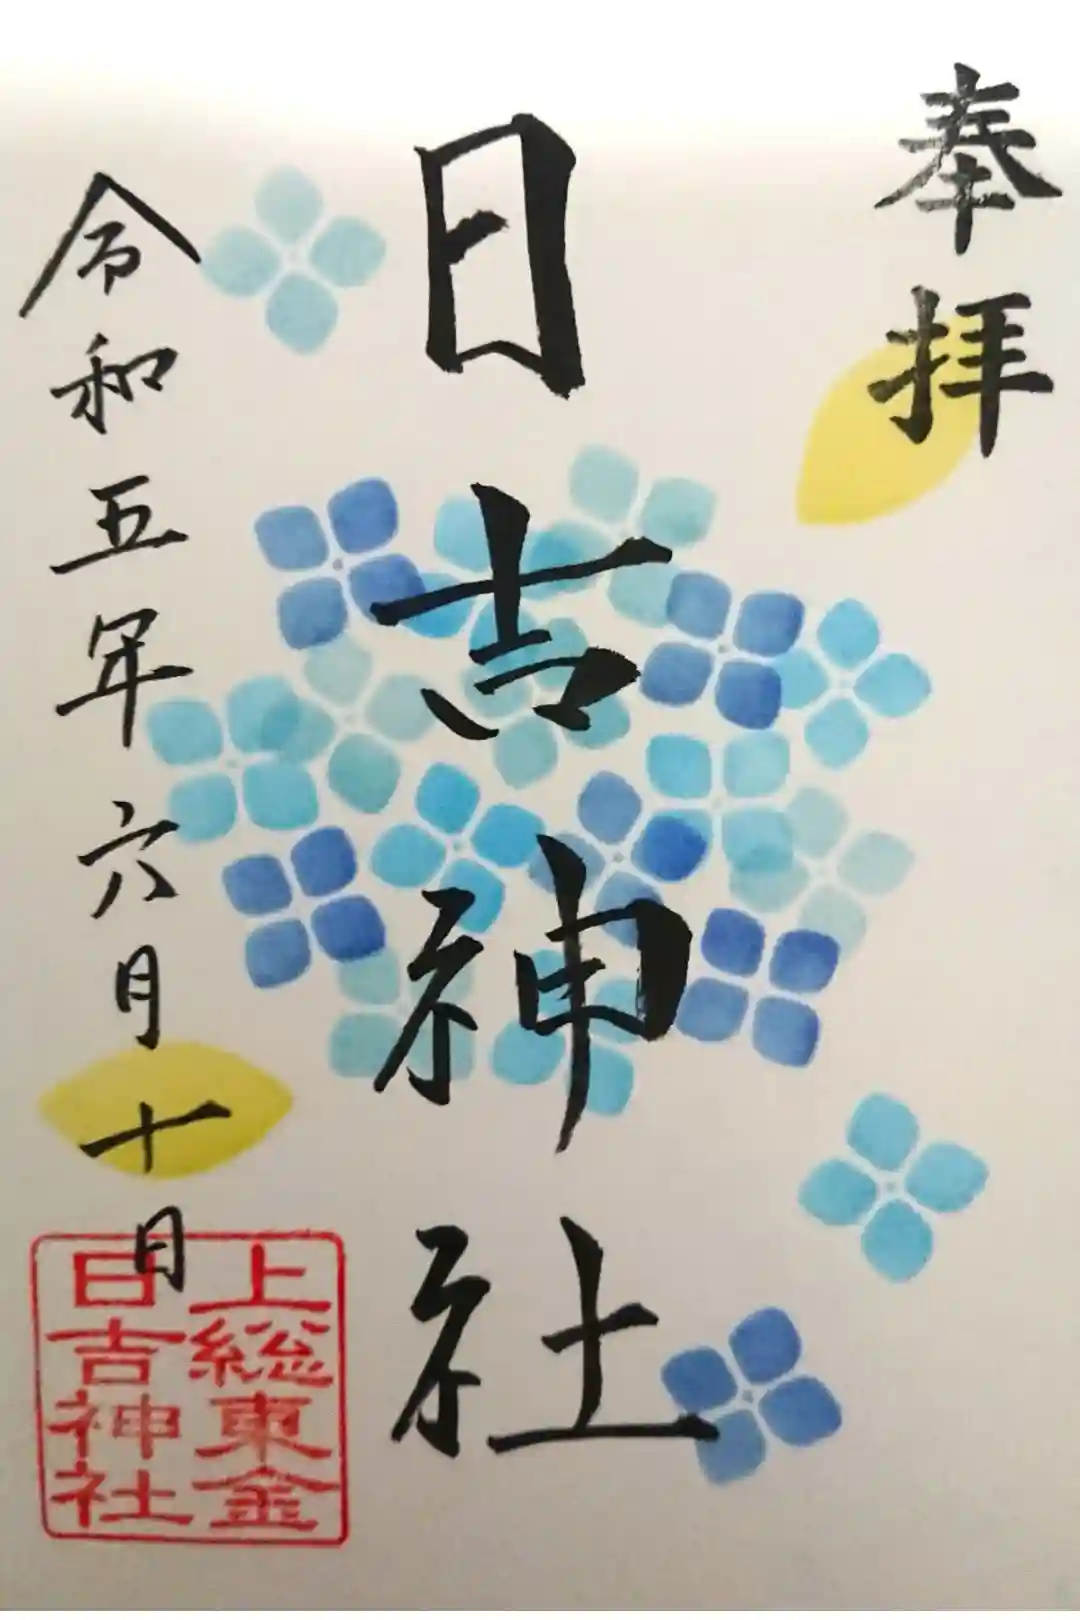 奉拝
日吉神社
令和五年六月十日
上総東金
日吉神社